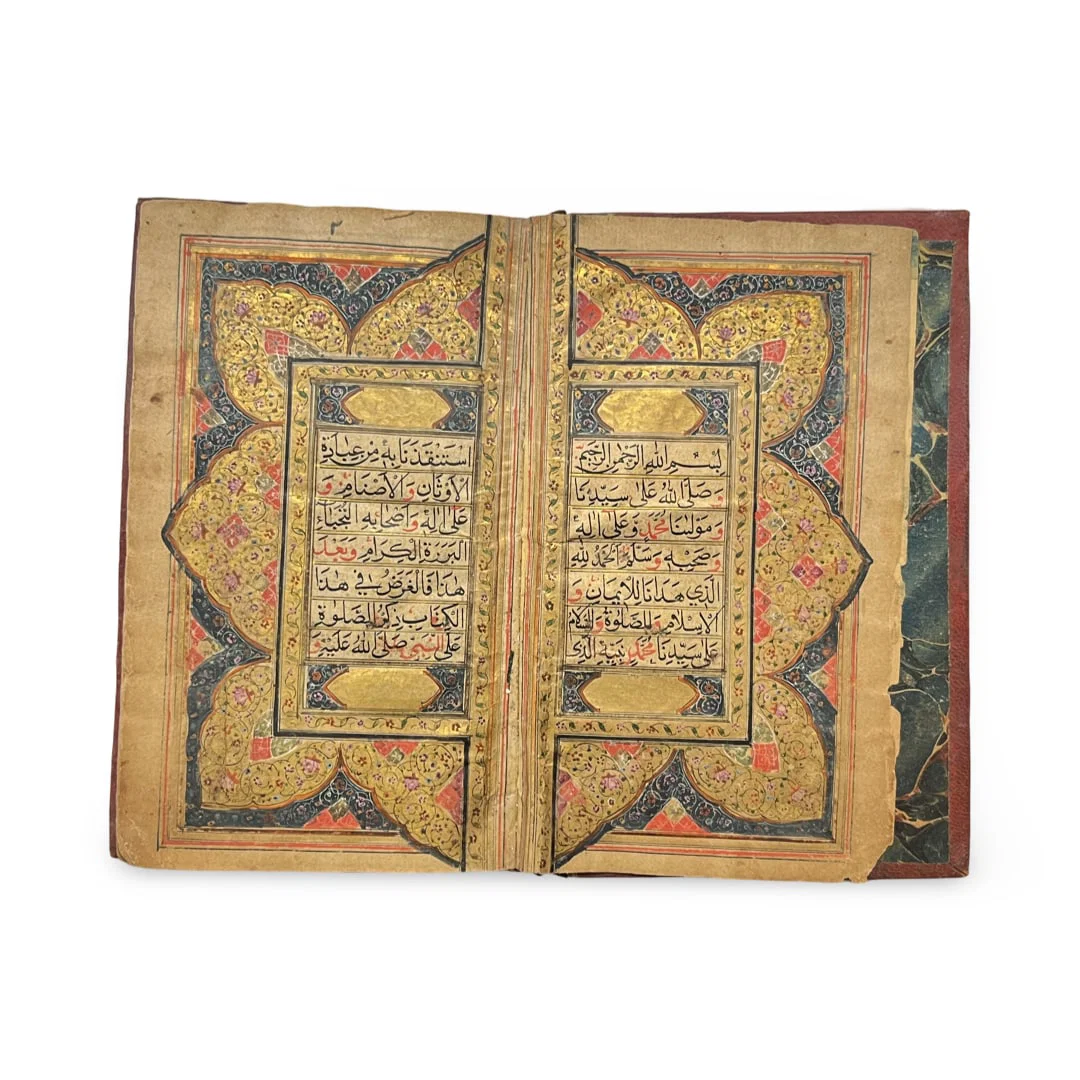 بِسْمِ اللهِ الرَّحْمٰنِ الرَّحِيْمِ
وَصَلَّى اللهُ عَلٰى سَيِّدِنَا
وَمَوْلٰنَا مُحَمَّدٍ وَعَلٰى اٰلِهٖ
وَصَحْبِهٖ وَسَلَّمْ اَلْحَمْدُ لِلّٰهِ
الَّذِي هَدَانَا لِلْاِيْمَانِ وَ
الْاِسْلَامِ وَالصَّلٰوةُ وَالسَّلَامُ
عَلٰى سَيِّدِنَا مُحَمَّدٍ نَبِيِّهِ الَّذِي
٢
اسْتَنْقَذَنَا بِهٖ مِنْ عِبَادَةِ
الْاَوْثَانِ وَالْاَصْنَامِ وَ
عَلٰى اٰلِهٖ وَاَصْحَابِهِ النُّجَبَاءِ
الْبَرَرَةِ الْكِرَامِ وَبَعْدَ
هٰذَا فَالْغَرَضُ فِي هٰذَا
الْكِتَابِ ذِكْرُ الصَّلٰوةِ
عَلَى النَّبِيِّ صَلَّى اللهُ عَلَيْهِ وَ